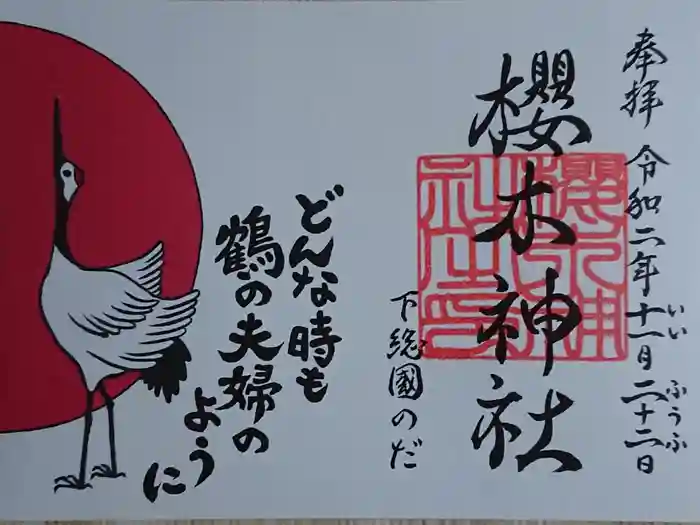 奉拝 令和二年十一月二十二日
いい ふうふ
櫻木神社
櫻木神社之印
下総國のだ
どんな時も
鶴の夫婦の
ように